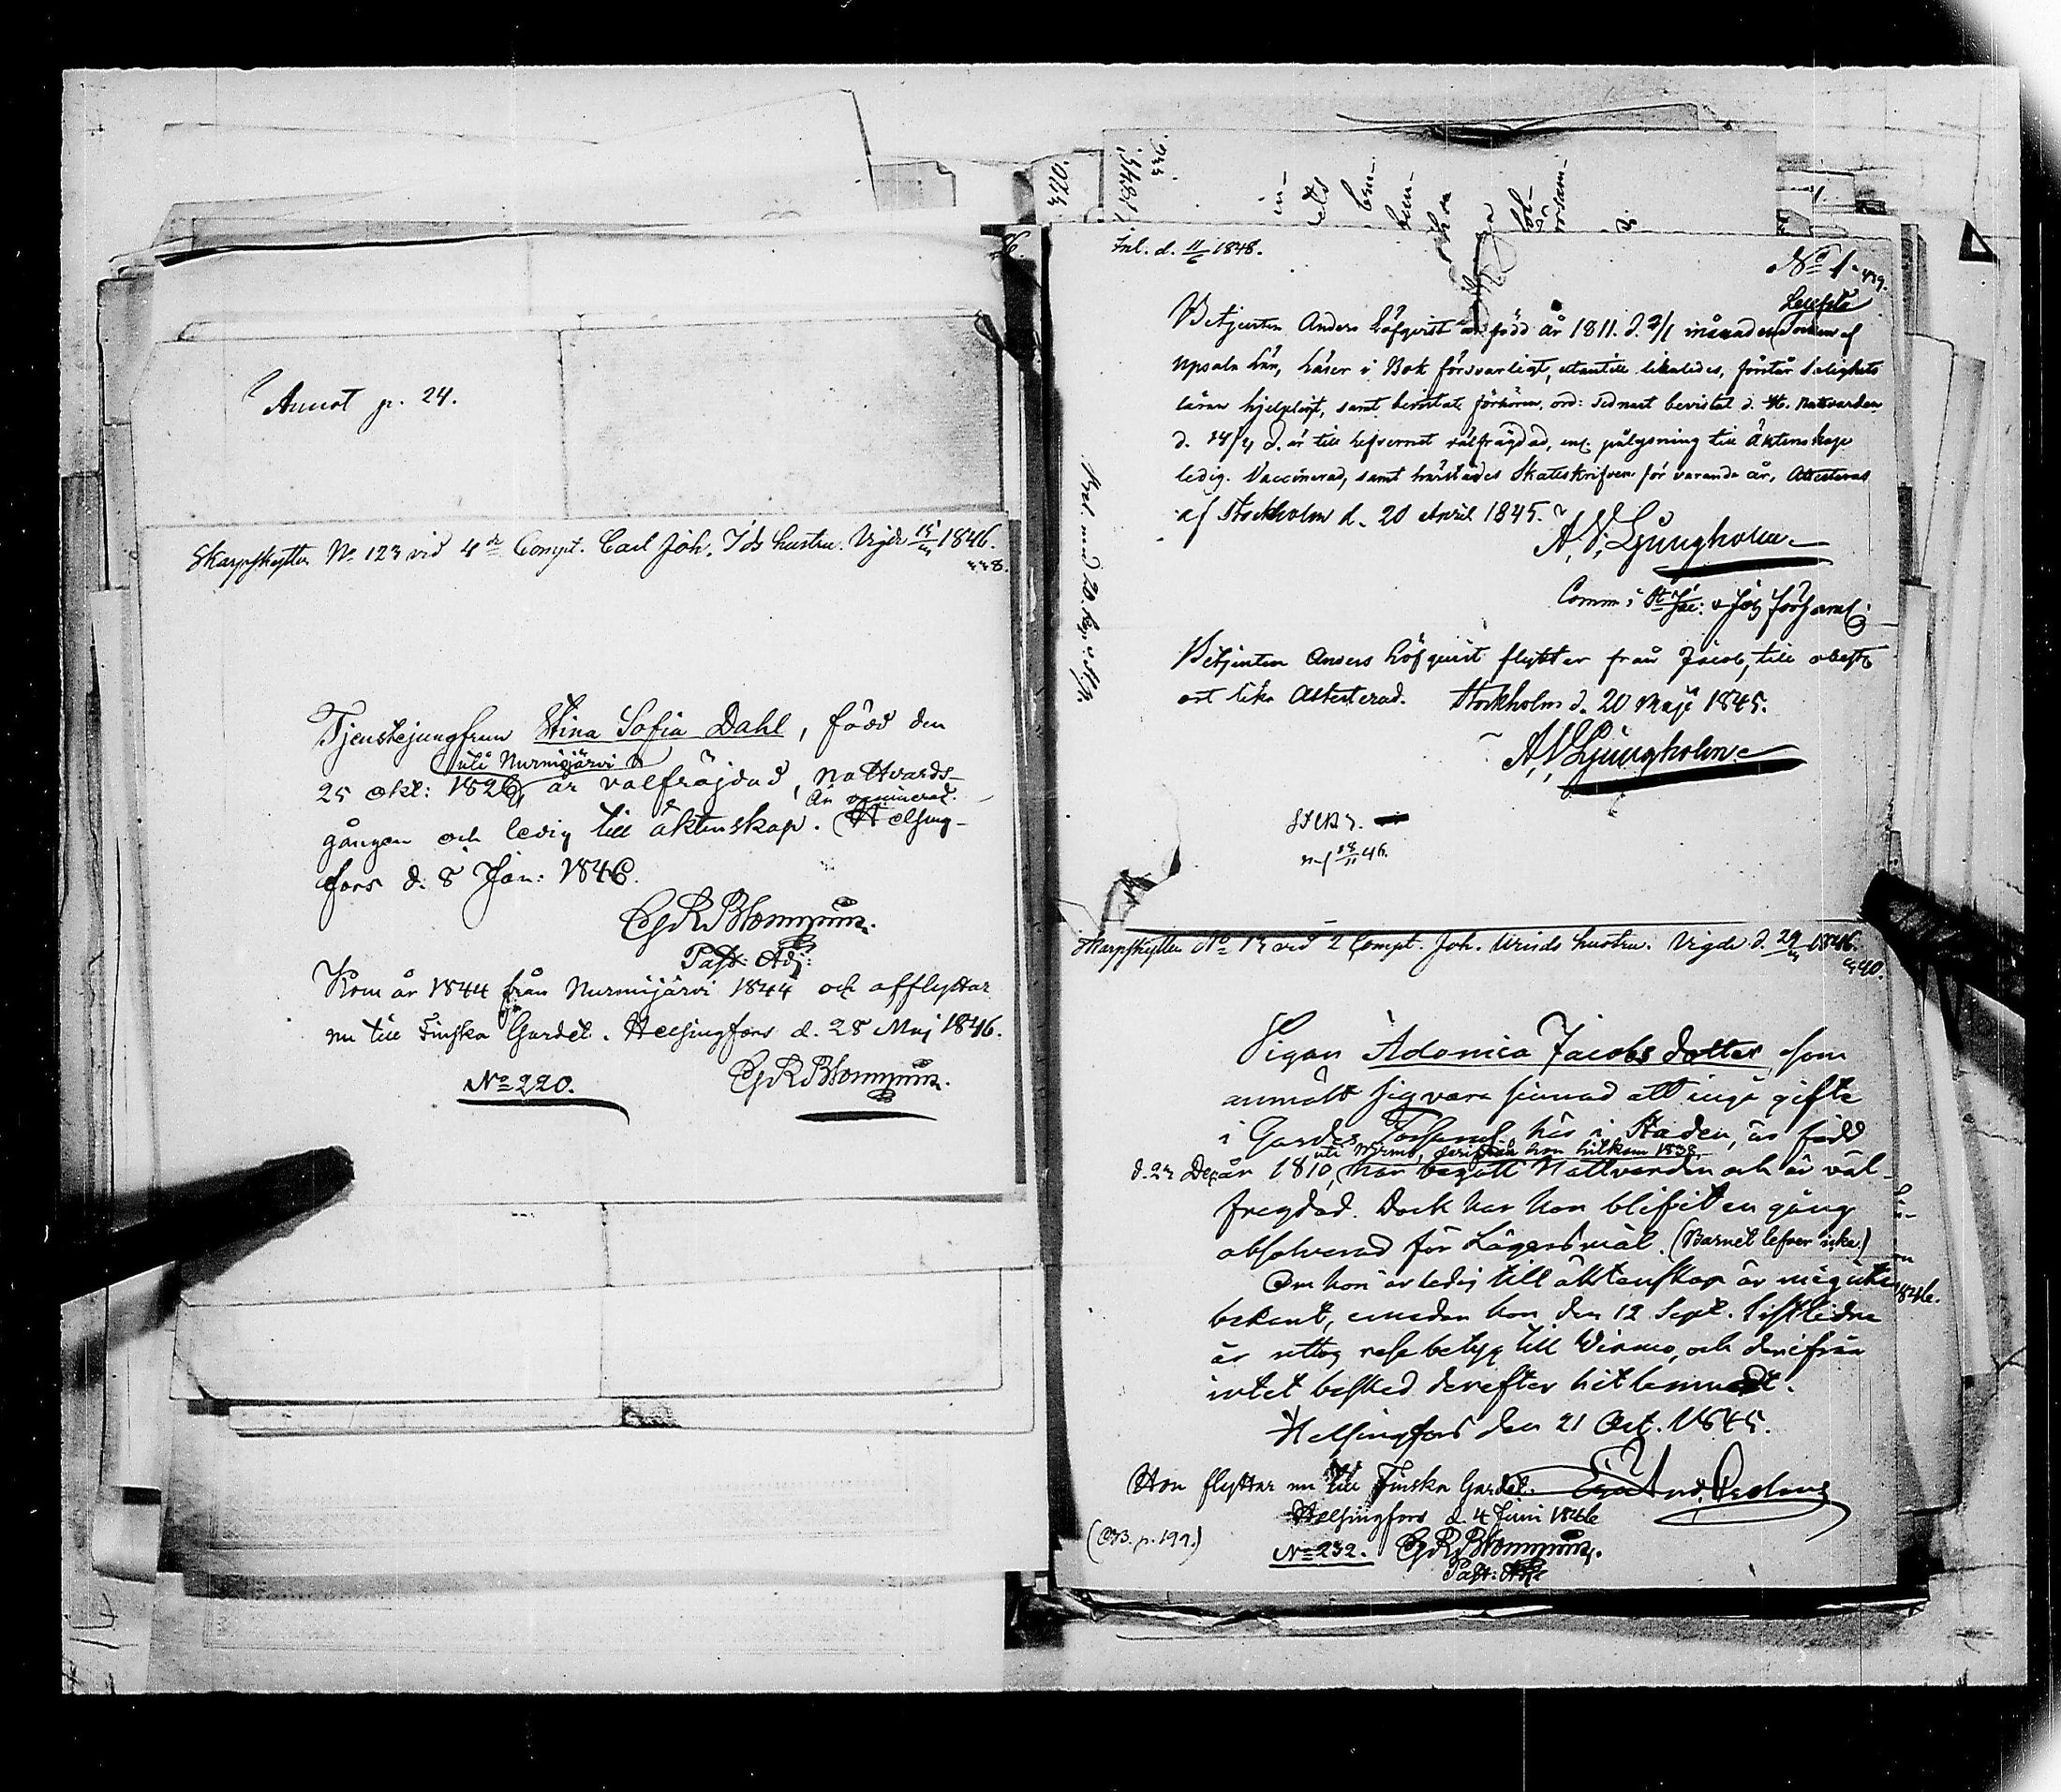 Annot p. 24.
Skarpskytten No 123 vid 4de Compt. Carl Joh. Ids hustru. Vigde 15/3 1846.
338.
Tjenstejungfrun Stina Sofia Dahl, född den
uti Nurmijärvi
25 okt: 1826, är välfräjdad, nattvards-
Är vaccinerad.
gången och ledig till äktenskap. Helsing-
fors d. 8 Jan: 1846.
Past: Adj:
Kom år 1844 från Nurmijärvi 1844 och afflyttar
nu till Finska Gardet. Helsingfors d. 28 Maj 1846.
No 220.
Inl. d. 11/6 1848.
No 1. 439.
Leufsta
Betjenten Anders Löfqvist är född år 1811. d. 2/1 månaden Socken af
Upsala Län, läser i Bok försvarligt, utantill likaledes, förstår Salighets
läran hjelpligt, samt bevistat förhören, ord: sednast bevistat d. H. Nattvarden
d. 14/4 d. år till lefvernet välfrägdad, enl. pålysning till Äktenskap
ledig. Vaccinerad, samt härstädes Skatteskrifven för varande år, Attesteras
af Stockholm d. 20 April 1845.
A. V. Ljungholm
Comm: i St Jac: & Joh Församl:
Betjenten Anders Löfquist flyttar från Jacob, till obest.
ort lika Attesterad. Stockholm d. 20 Maji 1845.
A. V. Ljungholm
Skarpskytten No 13 vid 2 Compt. Joh. Urinds hustru. Vigde d. 29/3 1846.
440.
Pigan Adamia Jacobsdotter, som
anmält sig vara sinnad att ingå gifte
i Gardes Församl. här i Staden, är född
uti Wirmo, derifrån hon hitkom 1838
d. 23 Dec. år 1810, har begått Nattvarden och är väl-
fregdad. Dock har hon blifvit en gång
absolverad för Lägersmål. (Barnet lefver icke.)
Om hon är ledig till äktenskap är mig icke
bekant, emedan hon den 12 Sept. sistledne
år uttog resebetyg till Wirmo, och derifrån
intet besked derefter hit lemnadt.
Helsingfors den 21 Oct. 1845.
Hon flyttar nu till Finska Gardet.
Helsingfors d. 4 Juni 1846
(CB. p. 199.)
No 232.
Past: Adj: